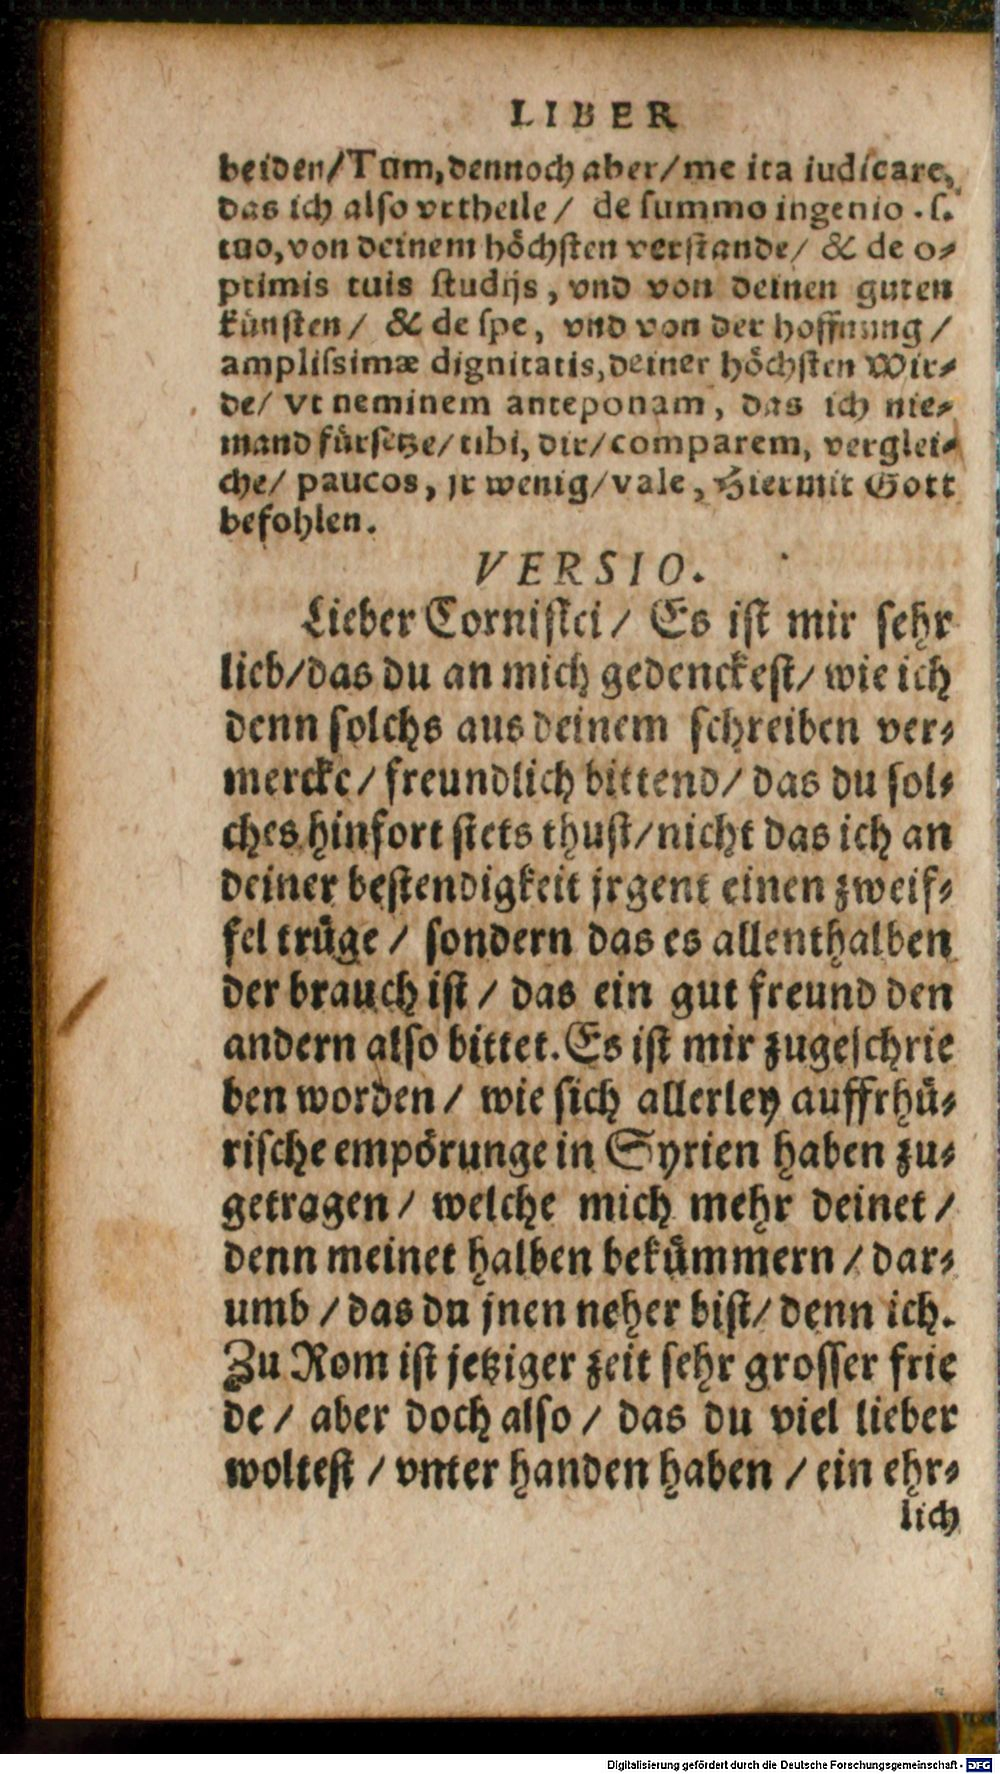 LIBER
beiden/Tam,dennoch aber/me ita iudicare,
das ich also vrtheile/ de summo ingenio . s.
tuo,von deinem höchsten verstande/ & de o⸗
ptimis tuis studijs, vnd von deinen guten
künsten/ & de spe, vnd von der hoffnung/
amplissimæ dignitatis,deiner höchsten Wir⸗
de/ vt neminem anteponam, das ich nie⸗
mand fürsetze/tibi, dir/comparem, verglei⸗
che/ paucos, jr wenig/vale, Hiermit Gott
befohlen.
VERSIO.
Lieber Cornifici/ Es ist mir sehr
lieb/das du an mich gedenckest/ wie ich
denn solchs aus deinem schreiben ver⸗
mercke/freundlich bittend/ das du sol⸗
ches hinfort stets thust/nicht das ich an
deiner bestendigkeit jrgent einen zweif⸗
fel trüge / sondern das es allenthalben
der brauch ist / das ein gut freund den
andern also bittet.Es ist mir zugeschrie
ben worden / wie sich allerley auffrhü⸗
rische empörunge in Syrien haben zu⸗
getragen / welche mich mehr deinet /
denn meinet halben bekümmern / dar⸗
umb / das du jnen neher bist/ denn ich.
Zu Rom ist jetziger zeit sehr grosser frie
de / aber doch also / das du viel lieber
woltest / vnter handen haben / ein ehr⸗
lich
Digitalisierung gefördert durch die Deutsche Forschungsgemeinschaft - DFG